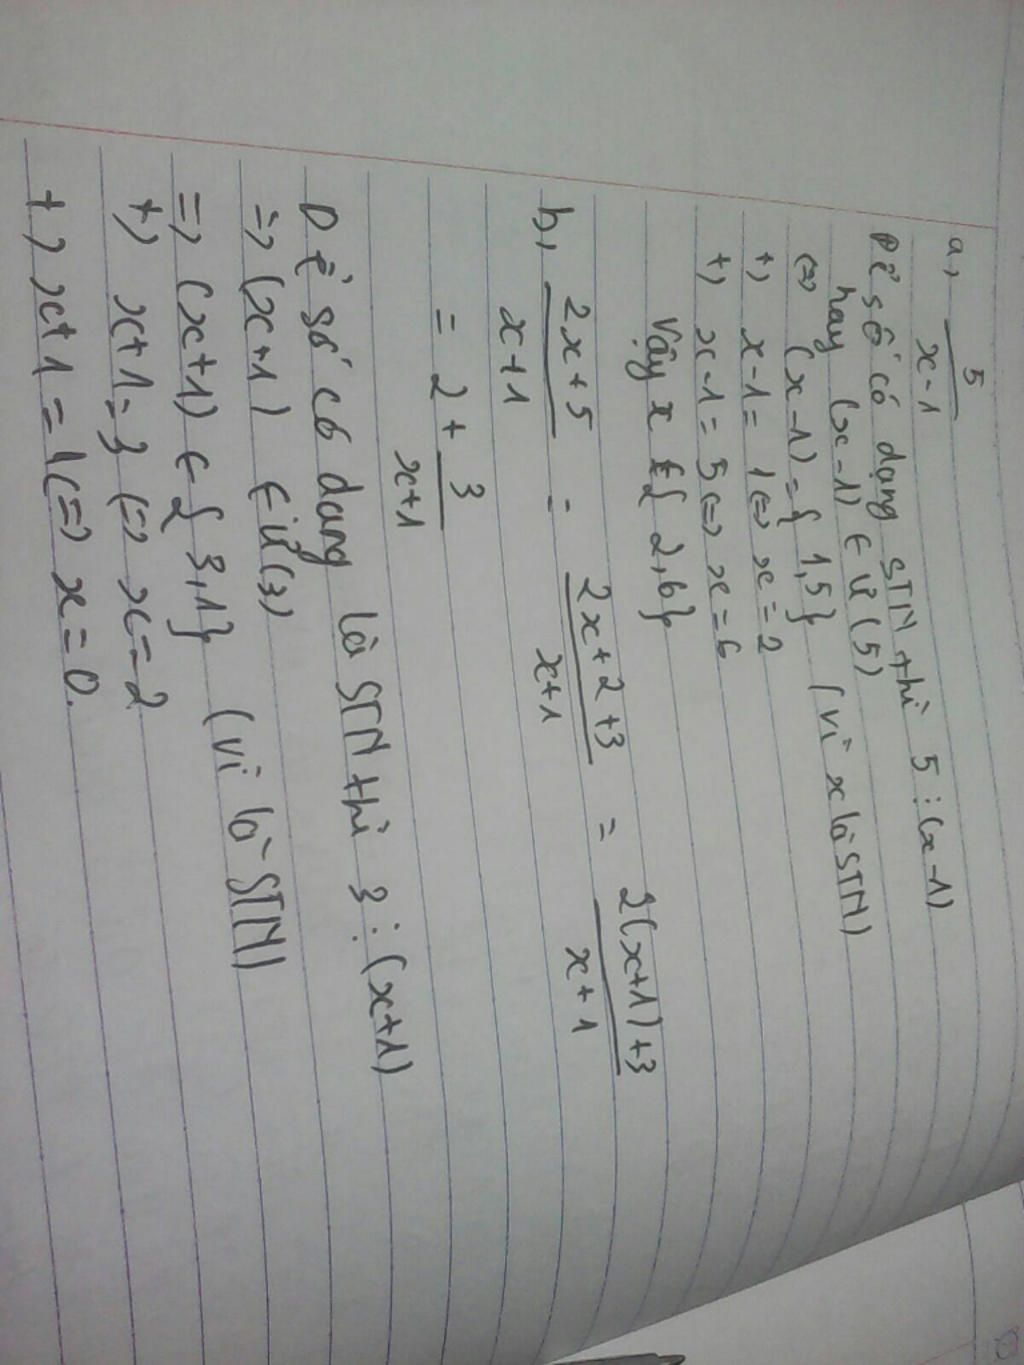 a, 5/(x-1)
Để số có dạng STN thì 5 ⋮ (x-1)
hay (x-1) ∈ Ư(5)
<=> (x-1) = { 1,5} (vì x là STN)
+) x-1 = 1 <=> x = 2
+) x-1 = 5 <=> x = 6
Vậy x ∈ { 2,6}
b, (2x+5)/(x+1) = (2x+2+3)/(x+1) = (2(x+1)+3)/(x+1)
= 2 + 3/(x+1)
Để số có dạng là STN thì 3 ⋮ (x+1)
=> (x+1) ∈ Ư(3)
=> (x+1) ∈ { 3,1} (vì là STN)
+) x+1 = 3 <=> x = 2
+) x+1 = 1 <=> x = 0.